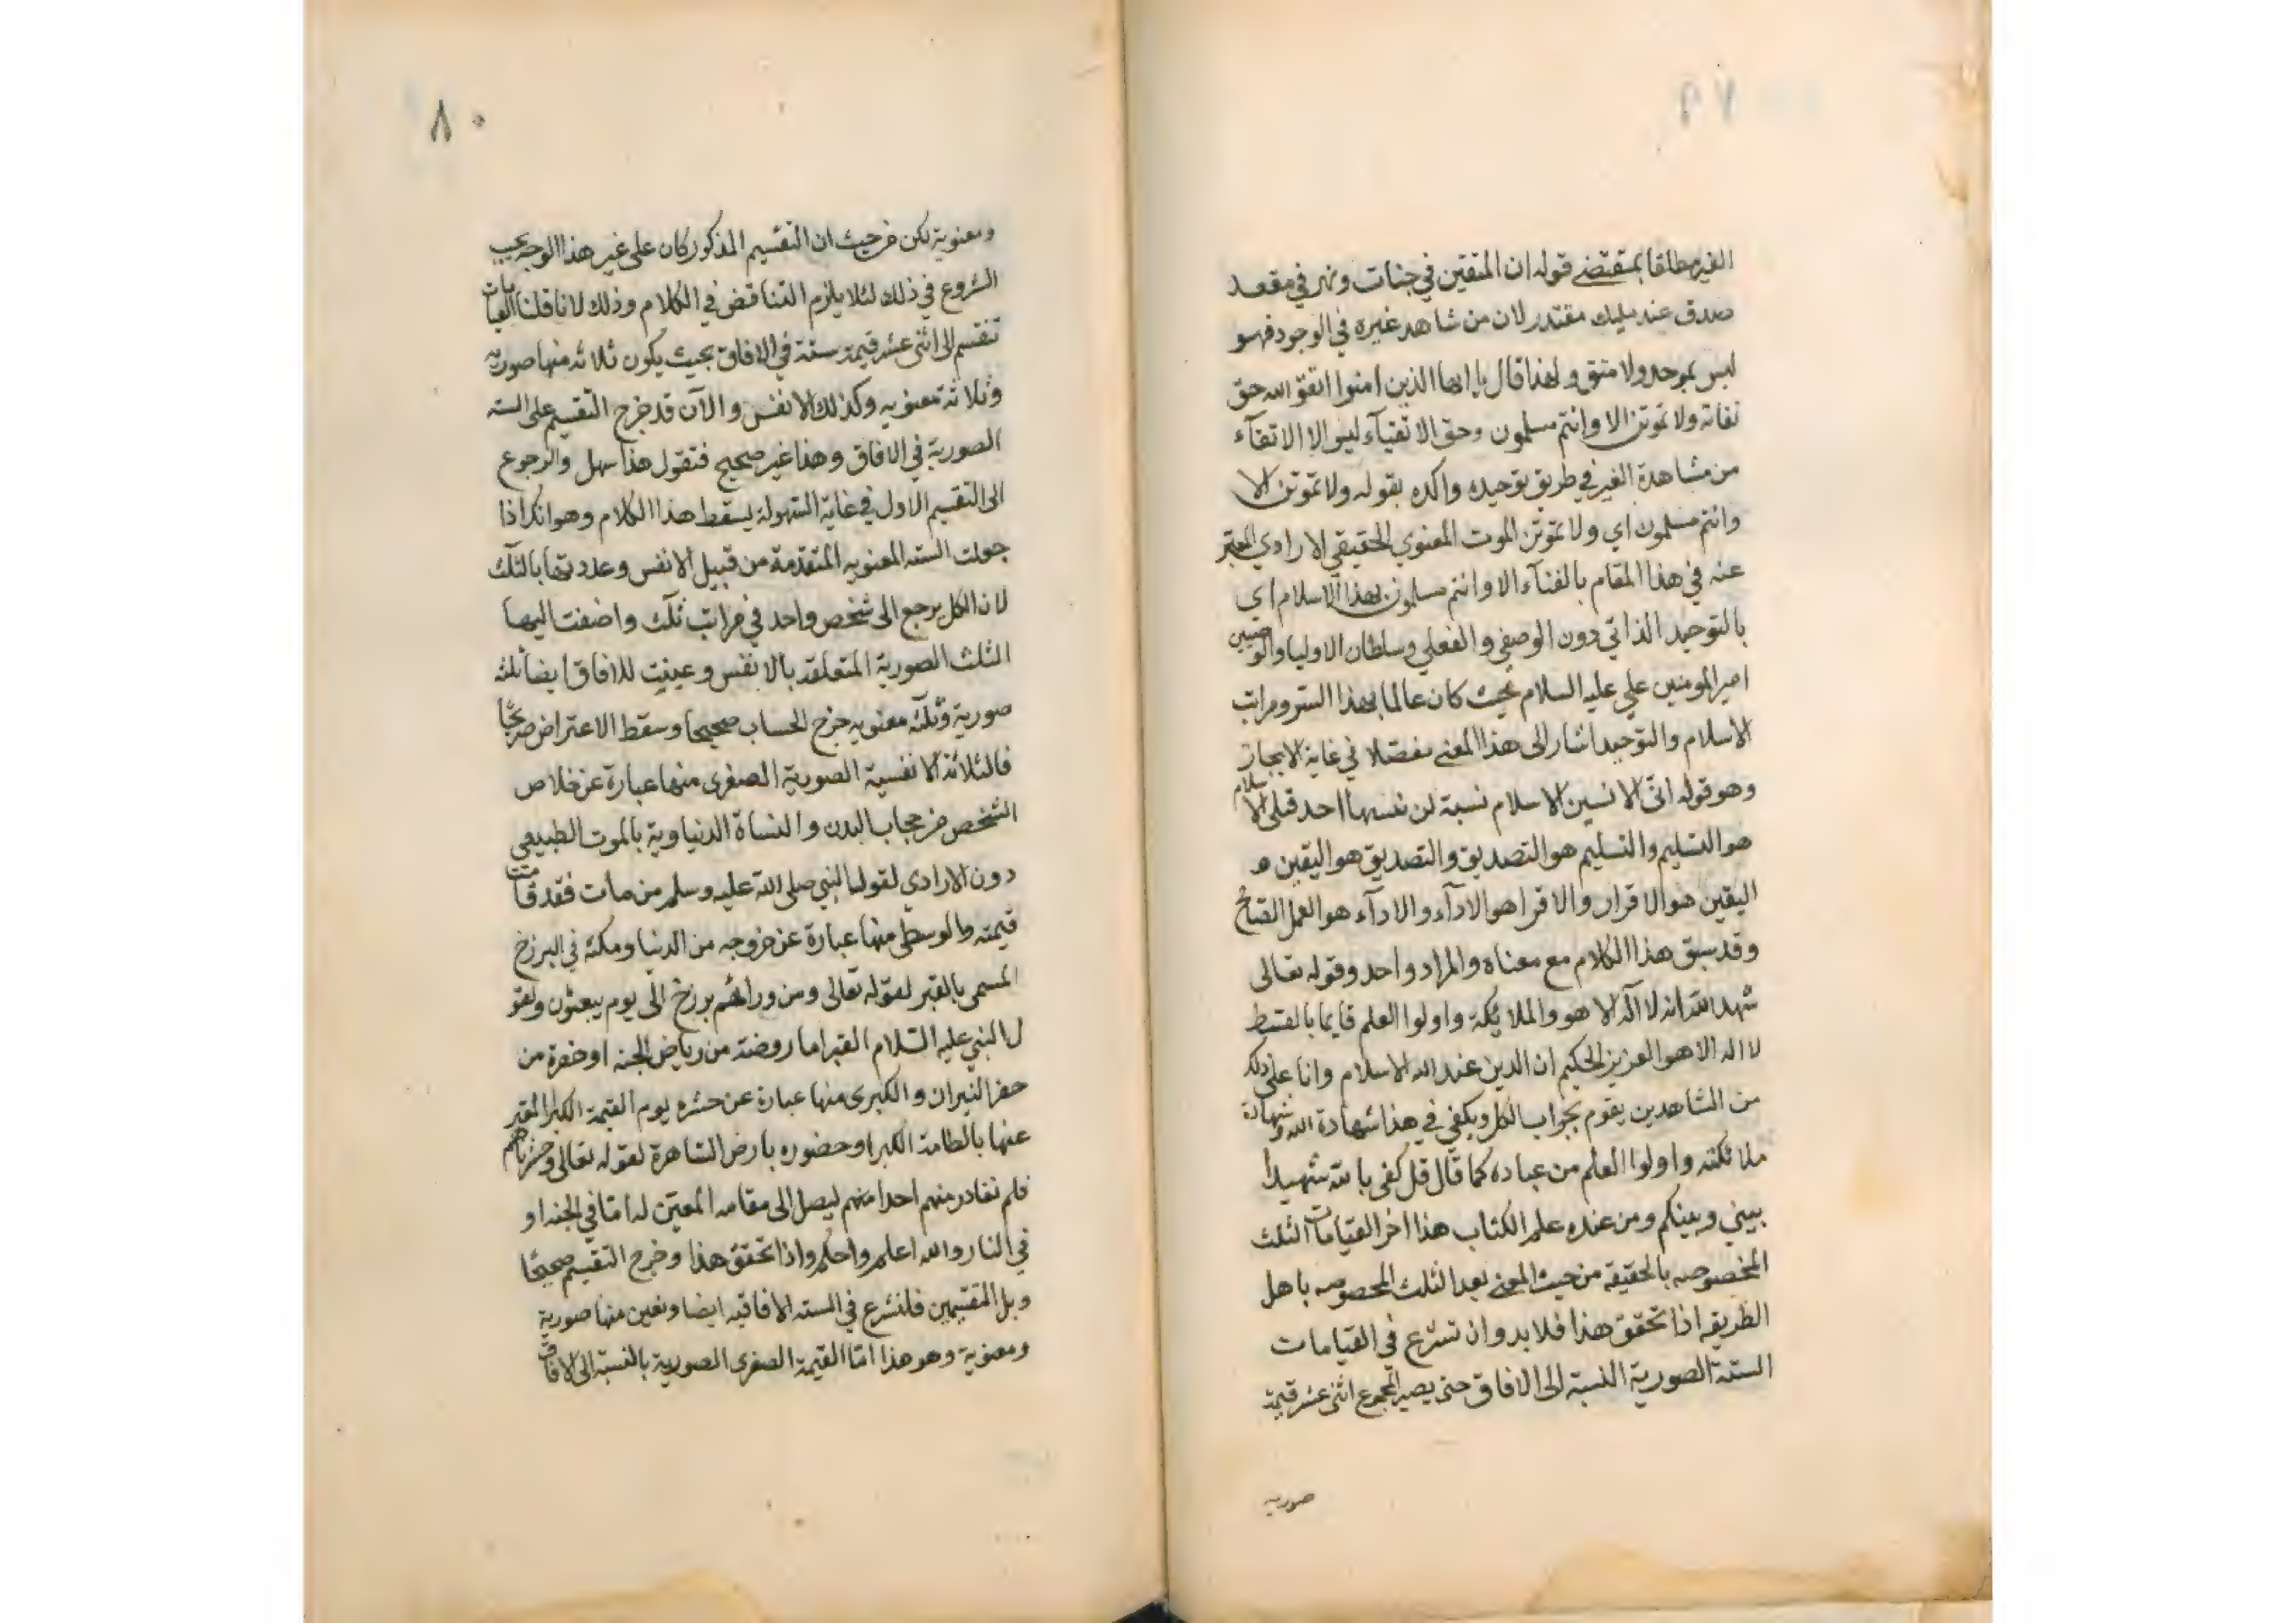 ٧٩
الغير مطلقا بمقتضى قوله ان المتقين في جنات ونهر في مقعد
صدق عند مليك مقتدر لان من شاهد غيره في الوجود فهو
ليس بموحد ولا متق و لهذا قال يا ايها الذين امنوا اتقو الله حق
تقاته ولا تموتن الا وانتم مسلمون وحق الاتقيآء ليس الا الاتقآء
من مشاهدة الغير في طريق توحيده واكده بقوله ولا تموتن الا
وانتم مسلمون اي ولا تموتن الموت المعنوي الحقيقي الارادي المعبر
عنه في هذا المقام بالفنآء الا وانتم مسلمون بهذا الاسلام اي
بالتوحيد الذاتي دون الوصفي والفعلي وسلطان الاوليا والوصيين
امير المومنين علي عليه السلام بحيث كان عالما بهذا السر ومراتب
الاسلام والتوحيد اشار الى هذا المعنى مفصلا في غاية الايجاز
وهو قوله انى لانسبن الاسلام نسبة لن ينسبها احد قبلى الاسلام
هو التسليم والتسليم هو التصديق والتصديق هو اليقين و
اليقين هو الاقرار والاقرا هو الادآء والادآء هو العمل الصالح
وقد سبق هذا الكلام مع معناه والمراد واحد وقوله تعالى
شهد الله انه لا اله الا هو والملايكة واولوا العلم قايما بالقسط
لا اله الا هو العزيز الحكيم ان الدين عند الله الاسلام وانا على ذلك
من الشاهدين يقوم بجواب الكل ويكفي في هذا شهادة الله وشهادة
ملائكته واولوا العلم من عباده كما قال قل كفى بالله شهيدا
بيني وبينكم ومن عنده علم الكتاب هذا اخر القيامات الثلث
المخصوصه بالحقيقه من حيث المعنى بعد الثلث المخصوصه باهل
الطريقه اذا تحقق هذا فلا بد وان نشرع في القيامات
الستة الصورية النسبة الى الافاق حتى يصير المجموع اثنى عشر قيمة
صوريه
٨٠
ومعنوية لكن من حيث ان التقسيم المذكور كان على غير هذا الوجه يجب
الشروع في ذلك لئلا يلزم التناقض في الكلام وذلك لانا قلنا القيامات
تنقسم الى اثنى عشر قيمة ستة في الافاق بحيث يكون ثلاثه منها صوريه
وثلاثة معنويه وكذلك الانفس والآن قد خرج التقسيم على السته
الصورية في الافاق وهذا غير صحيح فنقول هذا سهل والرجوع
الى التقسيم الاول في غاية السهولة يسقط هذا الكلام وهو انك اذا
جعلت السته المعنويه المتقدمة من قبيل الانفس وعددتها بالثلث
لان الكل يرجع الى شخص واحد في مراتب ثلث واضفت اليها
الثلث الصورية المتعلقه بالانفس وعينت للافاق ايضا ثلثه
صورية وثلثه معنويه خرج الحساب صحيحا وسقط الاعتراض صريحا
فالثلاثة الانفسية الصورية الصغرى منها عبارة عن خلاص
الشخص من حجاب البدن والنشاة الدنياوية بالموت الطبيعي
دون الارادي لقول النبي صلى الله عليه وسلم من مات فقد قامت
قيمته والوسطى منها عبارة عن خروجه من الدنيا ومكثه في البرزخ
المسمى بالقبر لقوله تعالى ومن ورائهم برزخ الى يوم يبعثون ولقو
ل النبي عليه السلام القبر اما روضة من رياض الجنه او حفرة من
حفر النيران والكبرى منها عبارة عن حشره يوم القيمة الكبرا المعبر
عنها بالطامة الكبرا وحضوره بارض الساهرة لقوله تعالى وحشرناهم
فلم نغادر منهم احدا منهم ليصل الى مقامه المعين له اما في الجنه او
في النار والله اعلم واحكم واذا تحقق هذا وخرج التقسيم صحيحا
فلنشرع في السته الافاقيه ايضا ونعين منها صورية
ومعنوية وهو هذا اما القيمة الصغرى الصورية بالنسبة الى الافاق